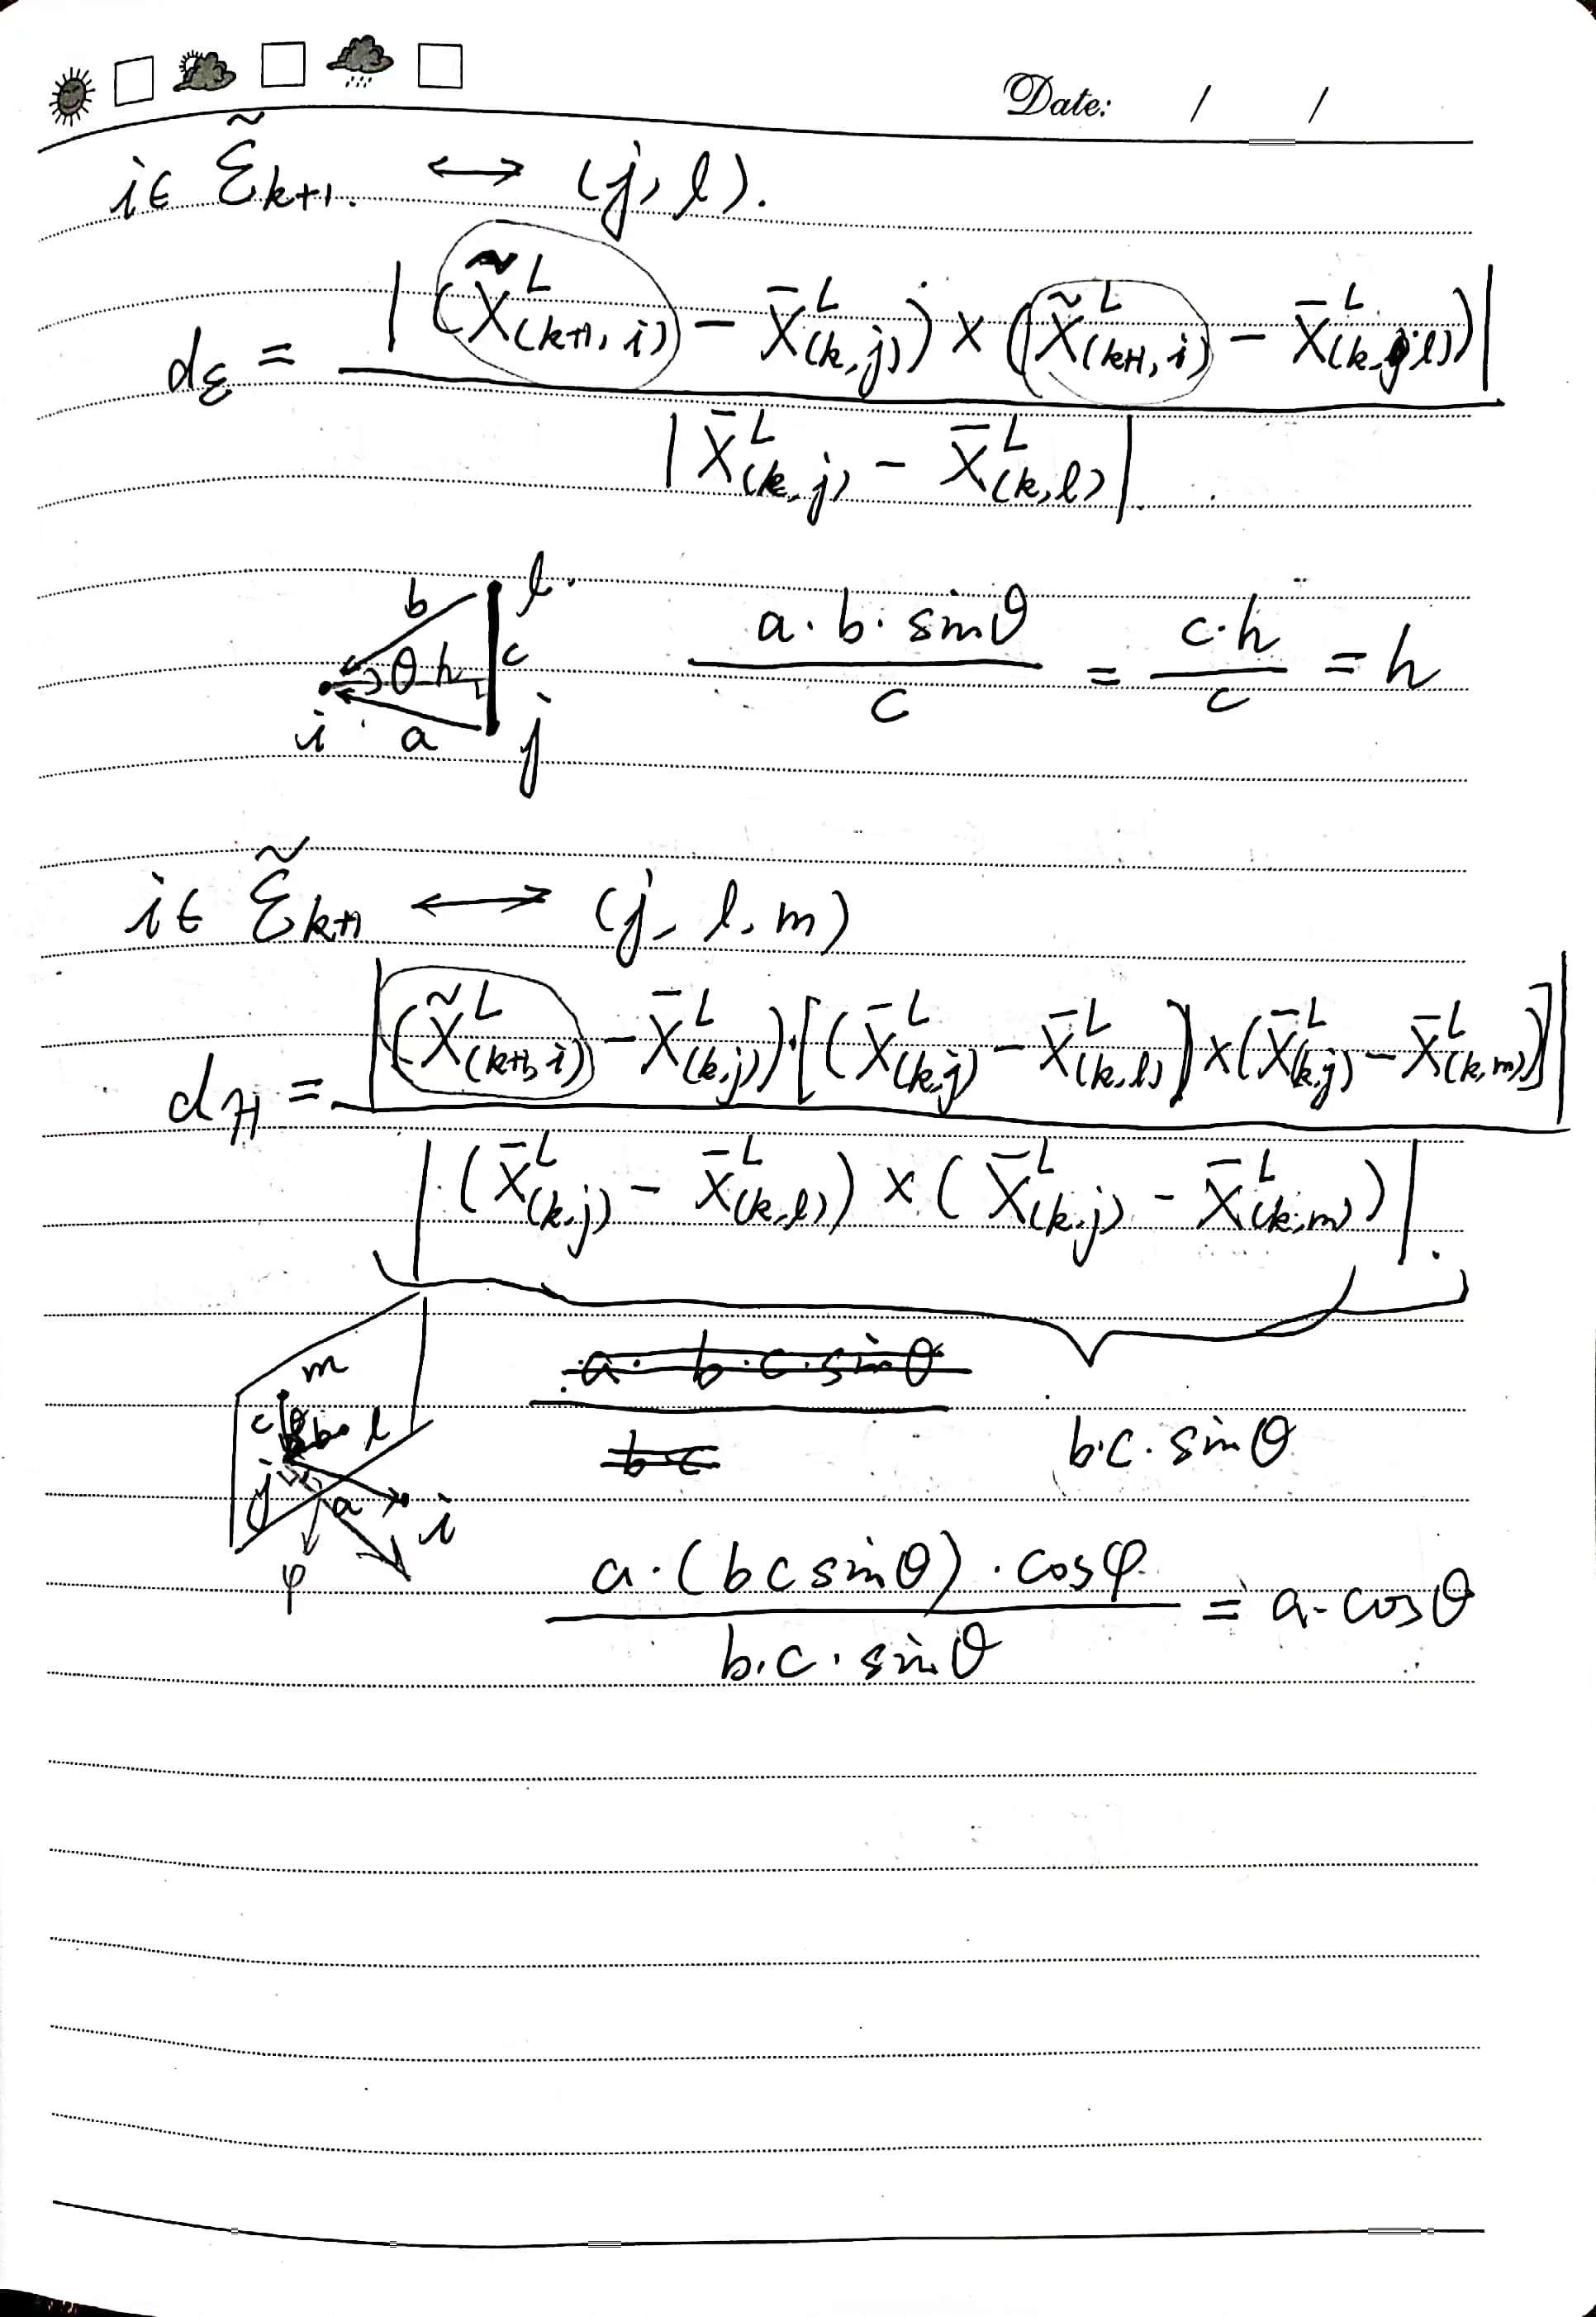 Date: / /
i ∈ ℰ̃ₖ₊₁. ⟷ (j, l).
d_ℰ = | (X̃ᴸ(k+1, i) − X̄ᴸ(k, j)) × (X̃ᴸ(k+1, i) − X̄ᴸ(k, l)) |
| X̄ᴸ(k, j) − X̄ᴸ(k, l) | .
b l
θ h c
i a j
a · b · sinθ / c = c·h / c = h
i ∈ ℰ̃ₖ₊₁ ⟷ (j, l, m)
d_H = | (X̃ᴸ(k+1, i) − X̄ᴸ(k, j)) · [(X̄ᴸ(k, j) − X̄ᴸ(k, l)) × (X̄ᴸ(k, j) − X̄ᴸ(k, m))] |
| (X̄ᴸ(k, j) − X̄ᴸ(k, l)) × (X̄ᴸ(k, j) − X̄ᴸ(k, m)) | .
m
a · b · c · sinθ
c θ b l
b c
b·c · sinθ
j a i
φ
a · (b c sinθ) · cosφ / b · c · sinθ = a · cosθ